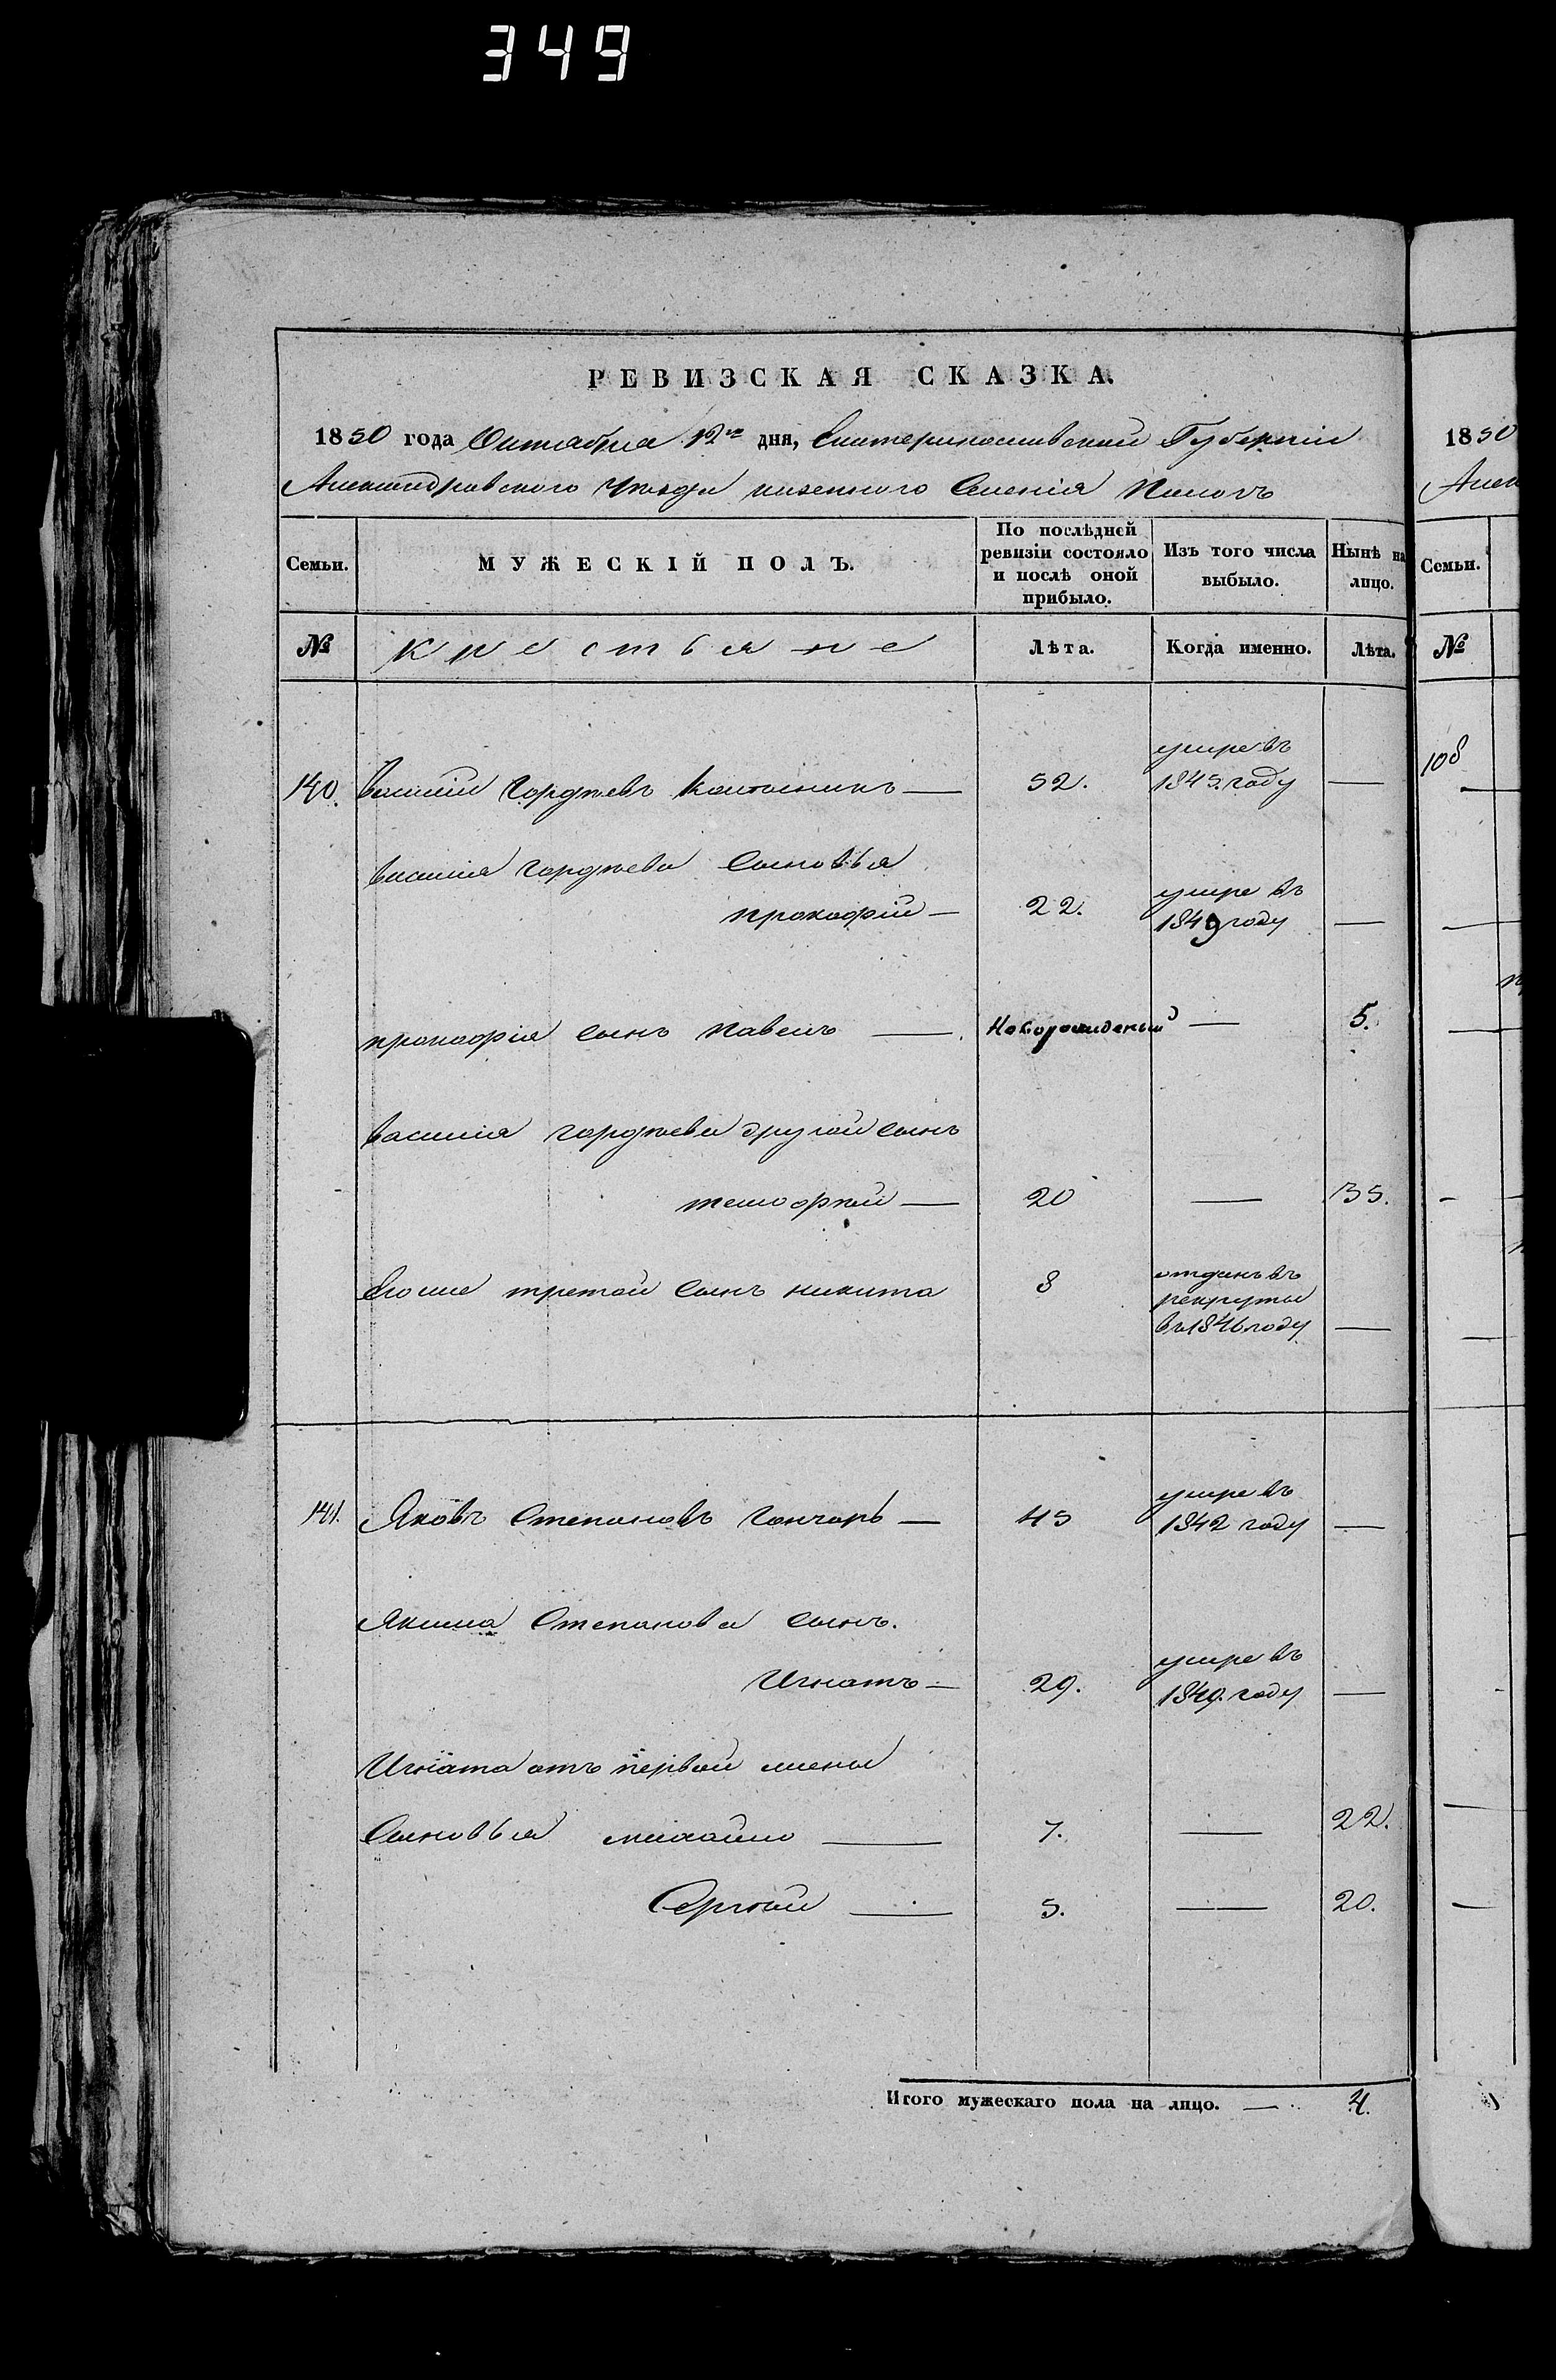 349
РЕВИЗСКАЯ СКАЗКА.
1850 года Октября 12го дня, Екатеринославской Губерніи
Александровского Уезда казенного Селенія Пологъ
Семьи.
МУЖЕСКІЙ ПОЛЪ.
По послѣдней ревизіи состояло и послѣ оной прибыло.
Изъ того числа выбыло.
Нынѣ на лицо.
№ крестьяне Лѣта. Когда именно. Лѣта.
140. Василій Гордѣевъ — 52. умре въ 1845 году —
василія гордѣева Сыновья
прокофій — 22. умре въ 1849 году —
прокофія сынъ павелъ — Новорожденый — 5.
василія гордѣева другой сынъ
тимофѣй — 20 — 35.
Его же третой сынъ никита 8 отданъ въ рекруты въ 1846 году —
141. Яковъ Степановъ гончаръ — 45 умре въ 1842 году —
Якима Степанова сынъ.
Игнатъ — 29. умре въ 1849. году —
Игната отъ первой жены
Сыновья михайло — 7. — 22.
Сергѣй — 5. — 20.
Итого мужескаго пола на лицо. — 4.
1850
Алек
Семьи.
№
108